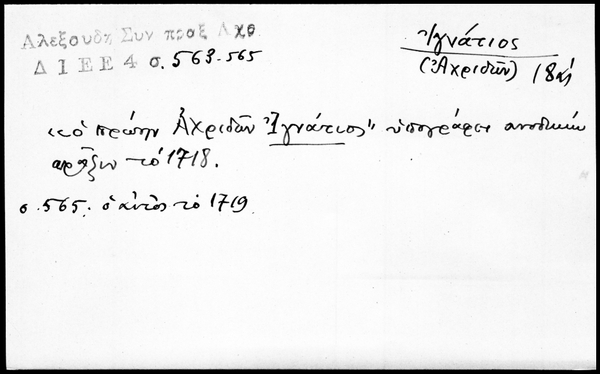 Αλεξουδη Συν πραξ Αχρ.
Δ Ι Ε Ε 4 σ. 563-565
Ἰγνάτιος
(Ἀχριδῶν) 18 αἰ
«ὁ πρώην Ἀχριδῶν Ἰγνάτιος» ὑπογράφει συνοδικήν
πρᾶξιν τό 1718.
σ. 565. ὁ αὐτός τό 1719